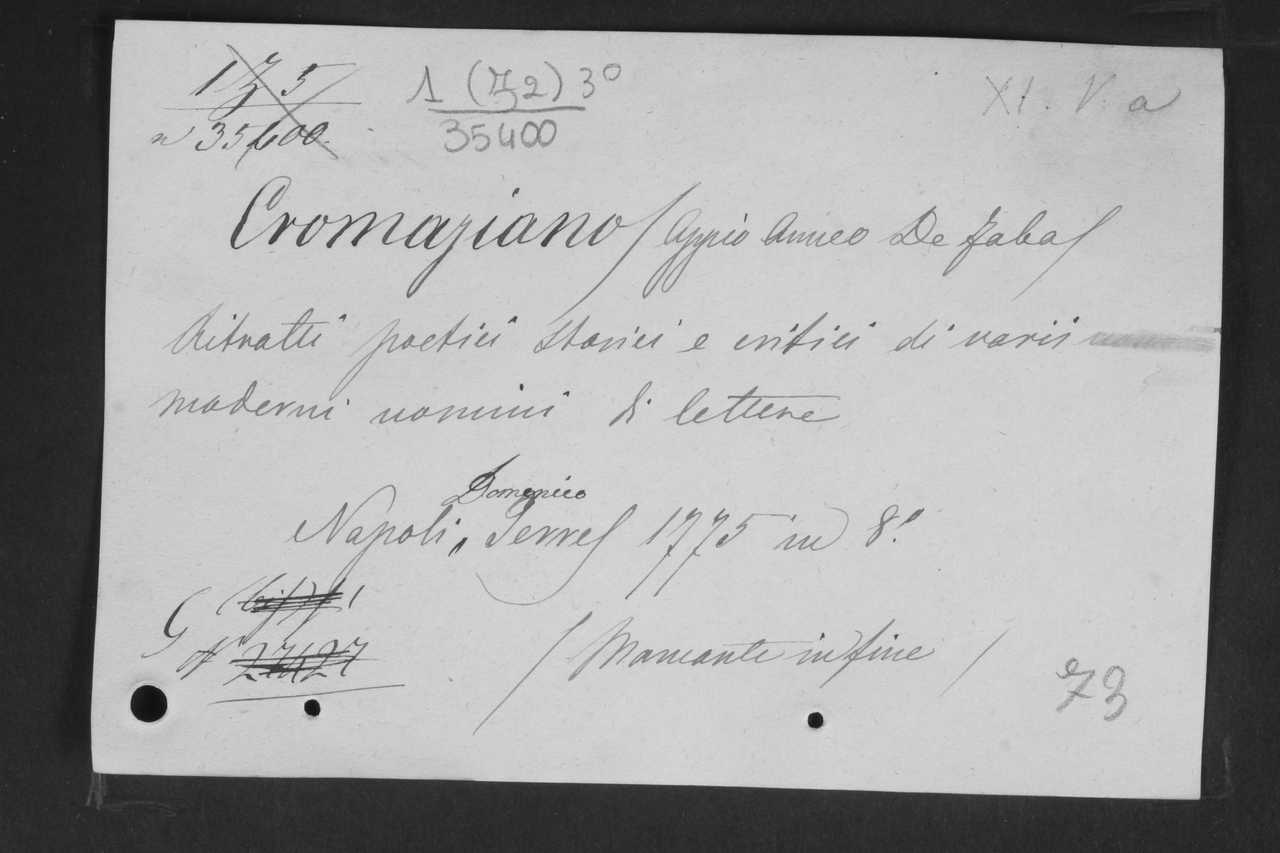 1 7 5
n 35400.
1 (72) 3º
35400
XI. V. a
Cromaziano (Appio Anneo De Faba)
Ritratti poetici storici e critici di varii
moderni uomini di lettere
Domenico
Napoli, Terres 1775 in 8.º
G
Nº 27427
(Mancante in fine)
73